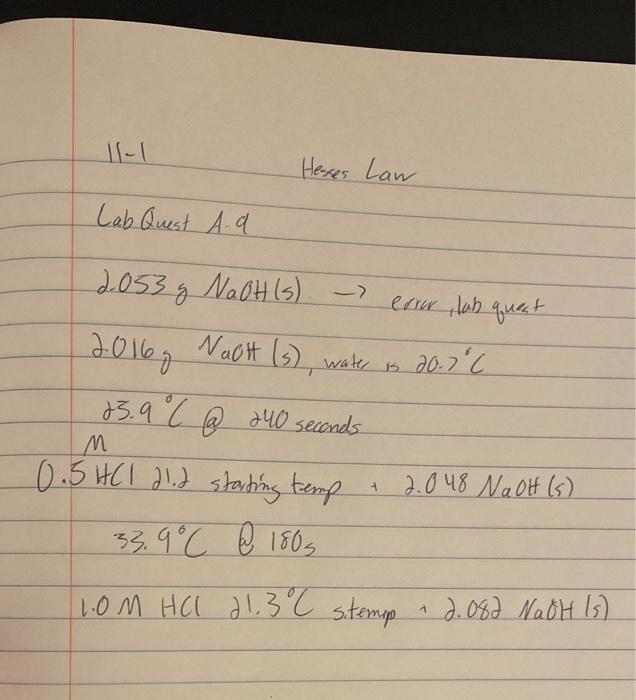 11-1
Hesses Law
Lab Quest A-9
2.053 g NaOH(s) -> error, lab quest
2.016g NaOH (s), water is 20.7°C
25.9°C @ 240 seconds
M
0.5 HCl 21.2 starting temp + 2.048 NaOH (s)
33.9°C @ 180s
1.0 M HCl 21.3°C s.temp + 2.082 NaOH (s)